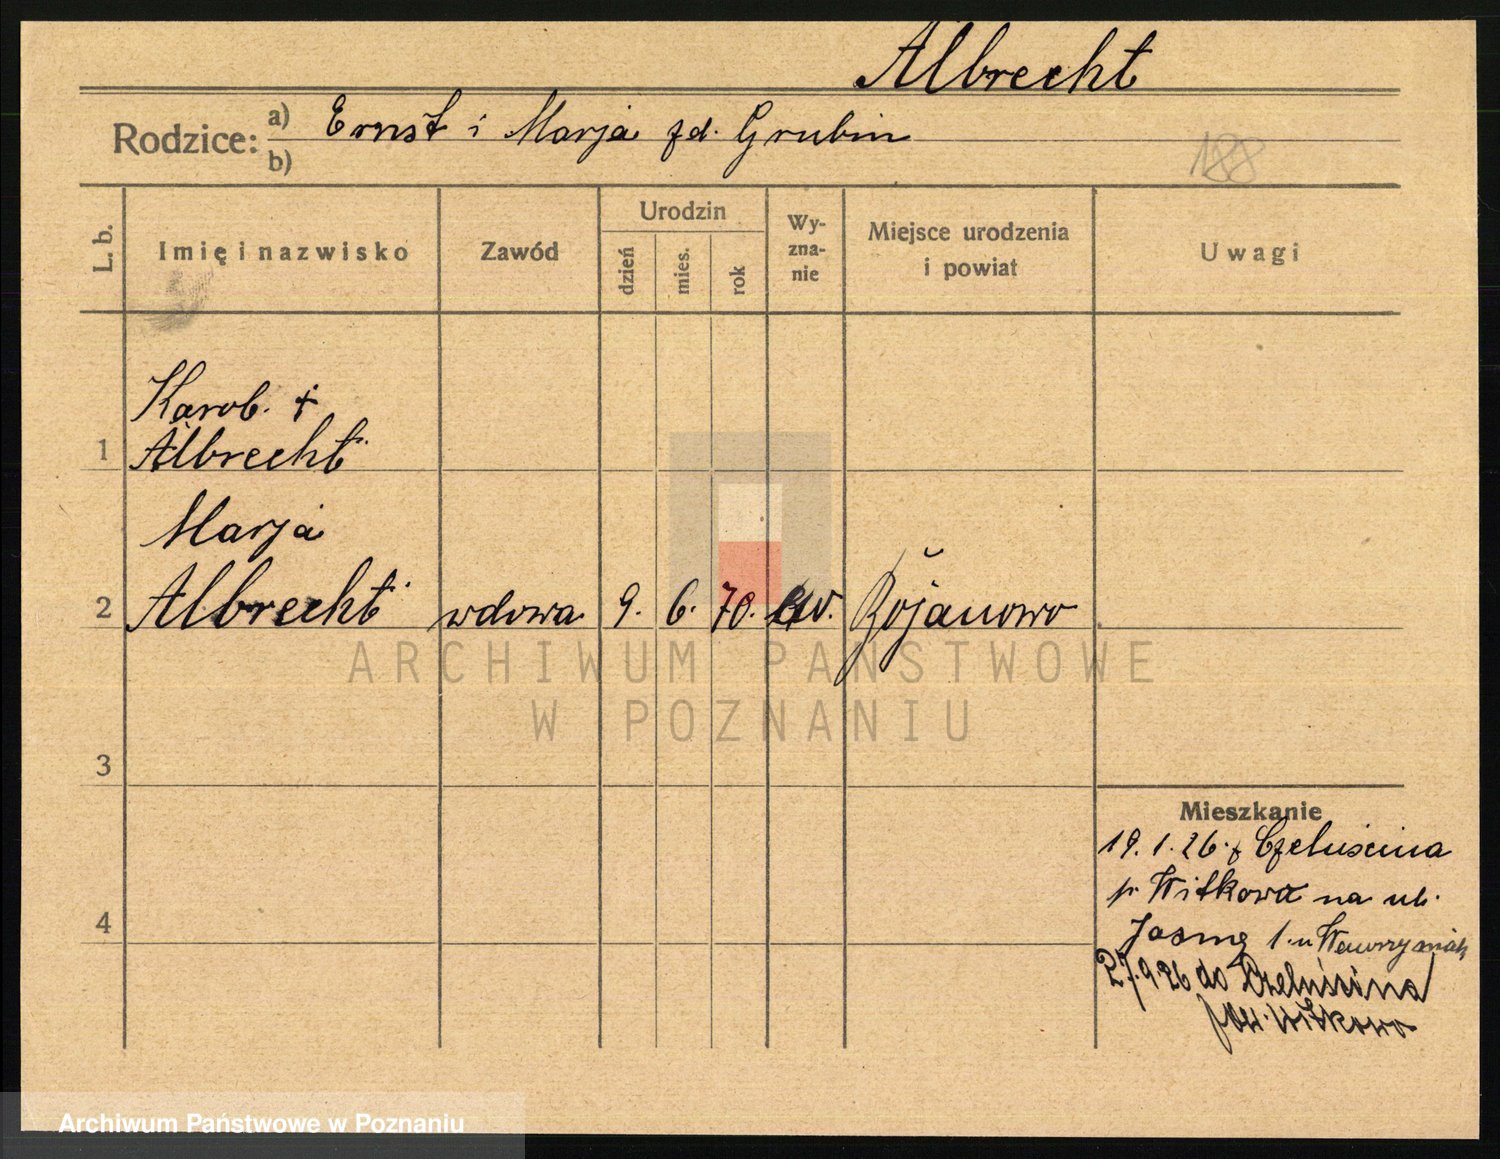 Albrecht
Rodzice: a) Ernst i Marja zd. Grubin
b)
188
L. b.
Imię i nazwisko
Zawód
Urodzin
dzień
mies.
rok
Wy-
zna-
nie
Miejsce urodzenia
i powiat
Uwagi
Karob. +
1 Albrecht
Marja
2 Albrecht wdowa 9. 6. 70. ew. Bojanowo
ARCHIWUM PAŃSTWOWE
W POZNANIU
3
Mieszkanie
19. 1. 26. z Czeluścina
p. Witkowa na ul.
4
Jasną 1. u Wawrzyniak
27.9.26 do Czeluścina
pow. Witkowo
Archiwum Państwowe w Poznaniu